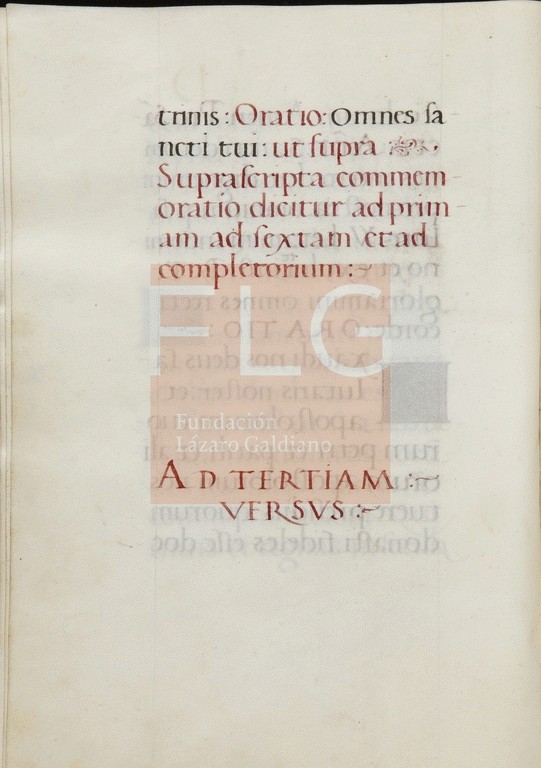 trinis : Oratio : Omnes ſa
ncti tui : ut ſupra :
Supraſcripta commem
oratio dicitur ad prim
am ad ſextam et ad
completorium :~
FLG
Fundación
Lázaro Galdiano
AD TERTIAM :~
VERSVS :~